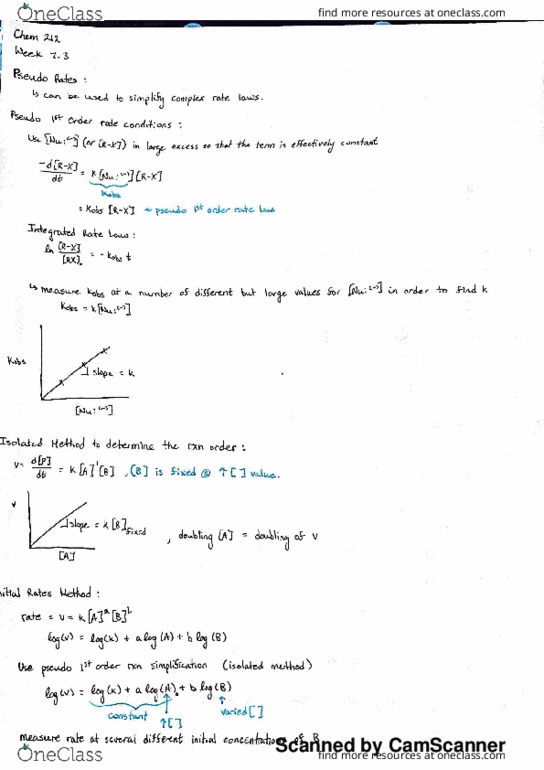 OneClass
find more resources at oneclass.com
Chem 212
Week 7.3
Pseudo Rates :
↳ can be used to simplify complex rate laws.
Pseudo 1st order rate conditions :
Use [Nu:(-)] (or R-X) in large excess so that the term is effectively constant
-d[R-X]/dt = k[Nu:(-)][R-X]
Kobs
= Kobs [R-X] ~ pseudo 1st order rate law
Integrated Rate Law :
ln [R-X]/[RX]o = - Kobs t
↳ measure Kobs at a number of different but large values for [Nu:(-)] in order to find k
Kobs = k[Nu:(-)]
Kobs
slope = k
[Nu:(-)]
Isolated Method to determine the rxn order :
v = d[P]/dt = k[A]¹[B] , [B] is fixed @ ↑[ ] value.
v
slope = k[B]fixed , doubling [A] = doubling of v
[A]
nitial Rates Method :
rate = v = k[A]ᵃ[B]ᵇ
log(v) = log(k) + a log(A) + b log(B)
Use pseudo 1st order rxn simplification (isolated method)
log(v) = log(k) + a log(A)o + b log(B)
constant ↑[ ] varied[ ]
measure rate at several different initial concentrations of B
Scanned by CamScanner
OneClass
find more resources at oneclass.com